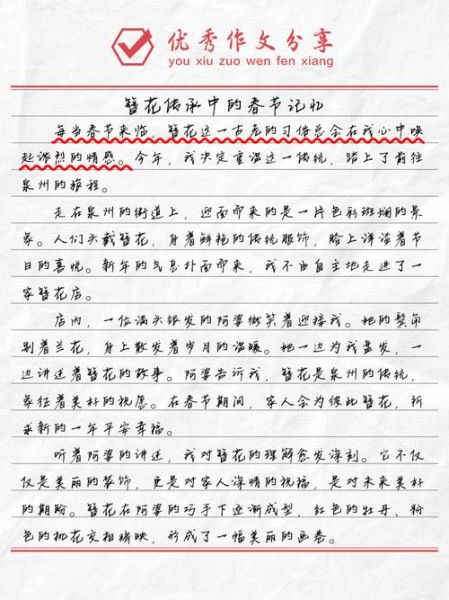 优秀作文分享
you xiu zuo wen fen xiang
簪花传承中的春节记忆
每当春节来临，簪花这一古老的习俗总会在我心中唤
起浓烈的情感。今年，我决定重温这一传统，踏上了前往
泉州的旅程。
走在泉州的街道上，迎面而来的是一片色彩斑斓的景
象。人们头戴簪花，身着鲜艳的传统服饰，脸上洋溢着节
日的喜悦。新年的气息扑面而来，我不由自主地走进了一
家簪花店。
店内，一位满头银发的阿婆微笑着迎接我。她的鬓角
别着兰花，身上散发着岁月的温暖。她一边为我盘发，一
边讲述着簪花的故事。阿婆告诉我，簪花是泉州的传统，
象征着美好的祝愿。在春节期间，家人会为彼此簪花，祈
求新的一年平安幸福。
听着阿婆的讲述，我对簪花的理解愈发深刻。它不仅
仅是美丽的装饰，更是对家人深情的祝福，是对未来美好
的期盼。簪花在阿婆的巧手下逐渐成型，红色的牡丹、粉
色的桃花交相辉映，形成了一幅美丽的画卷。